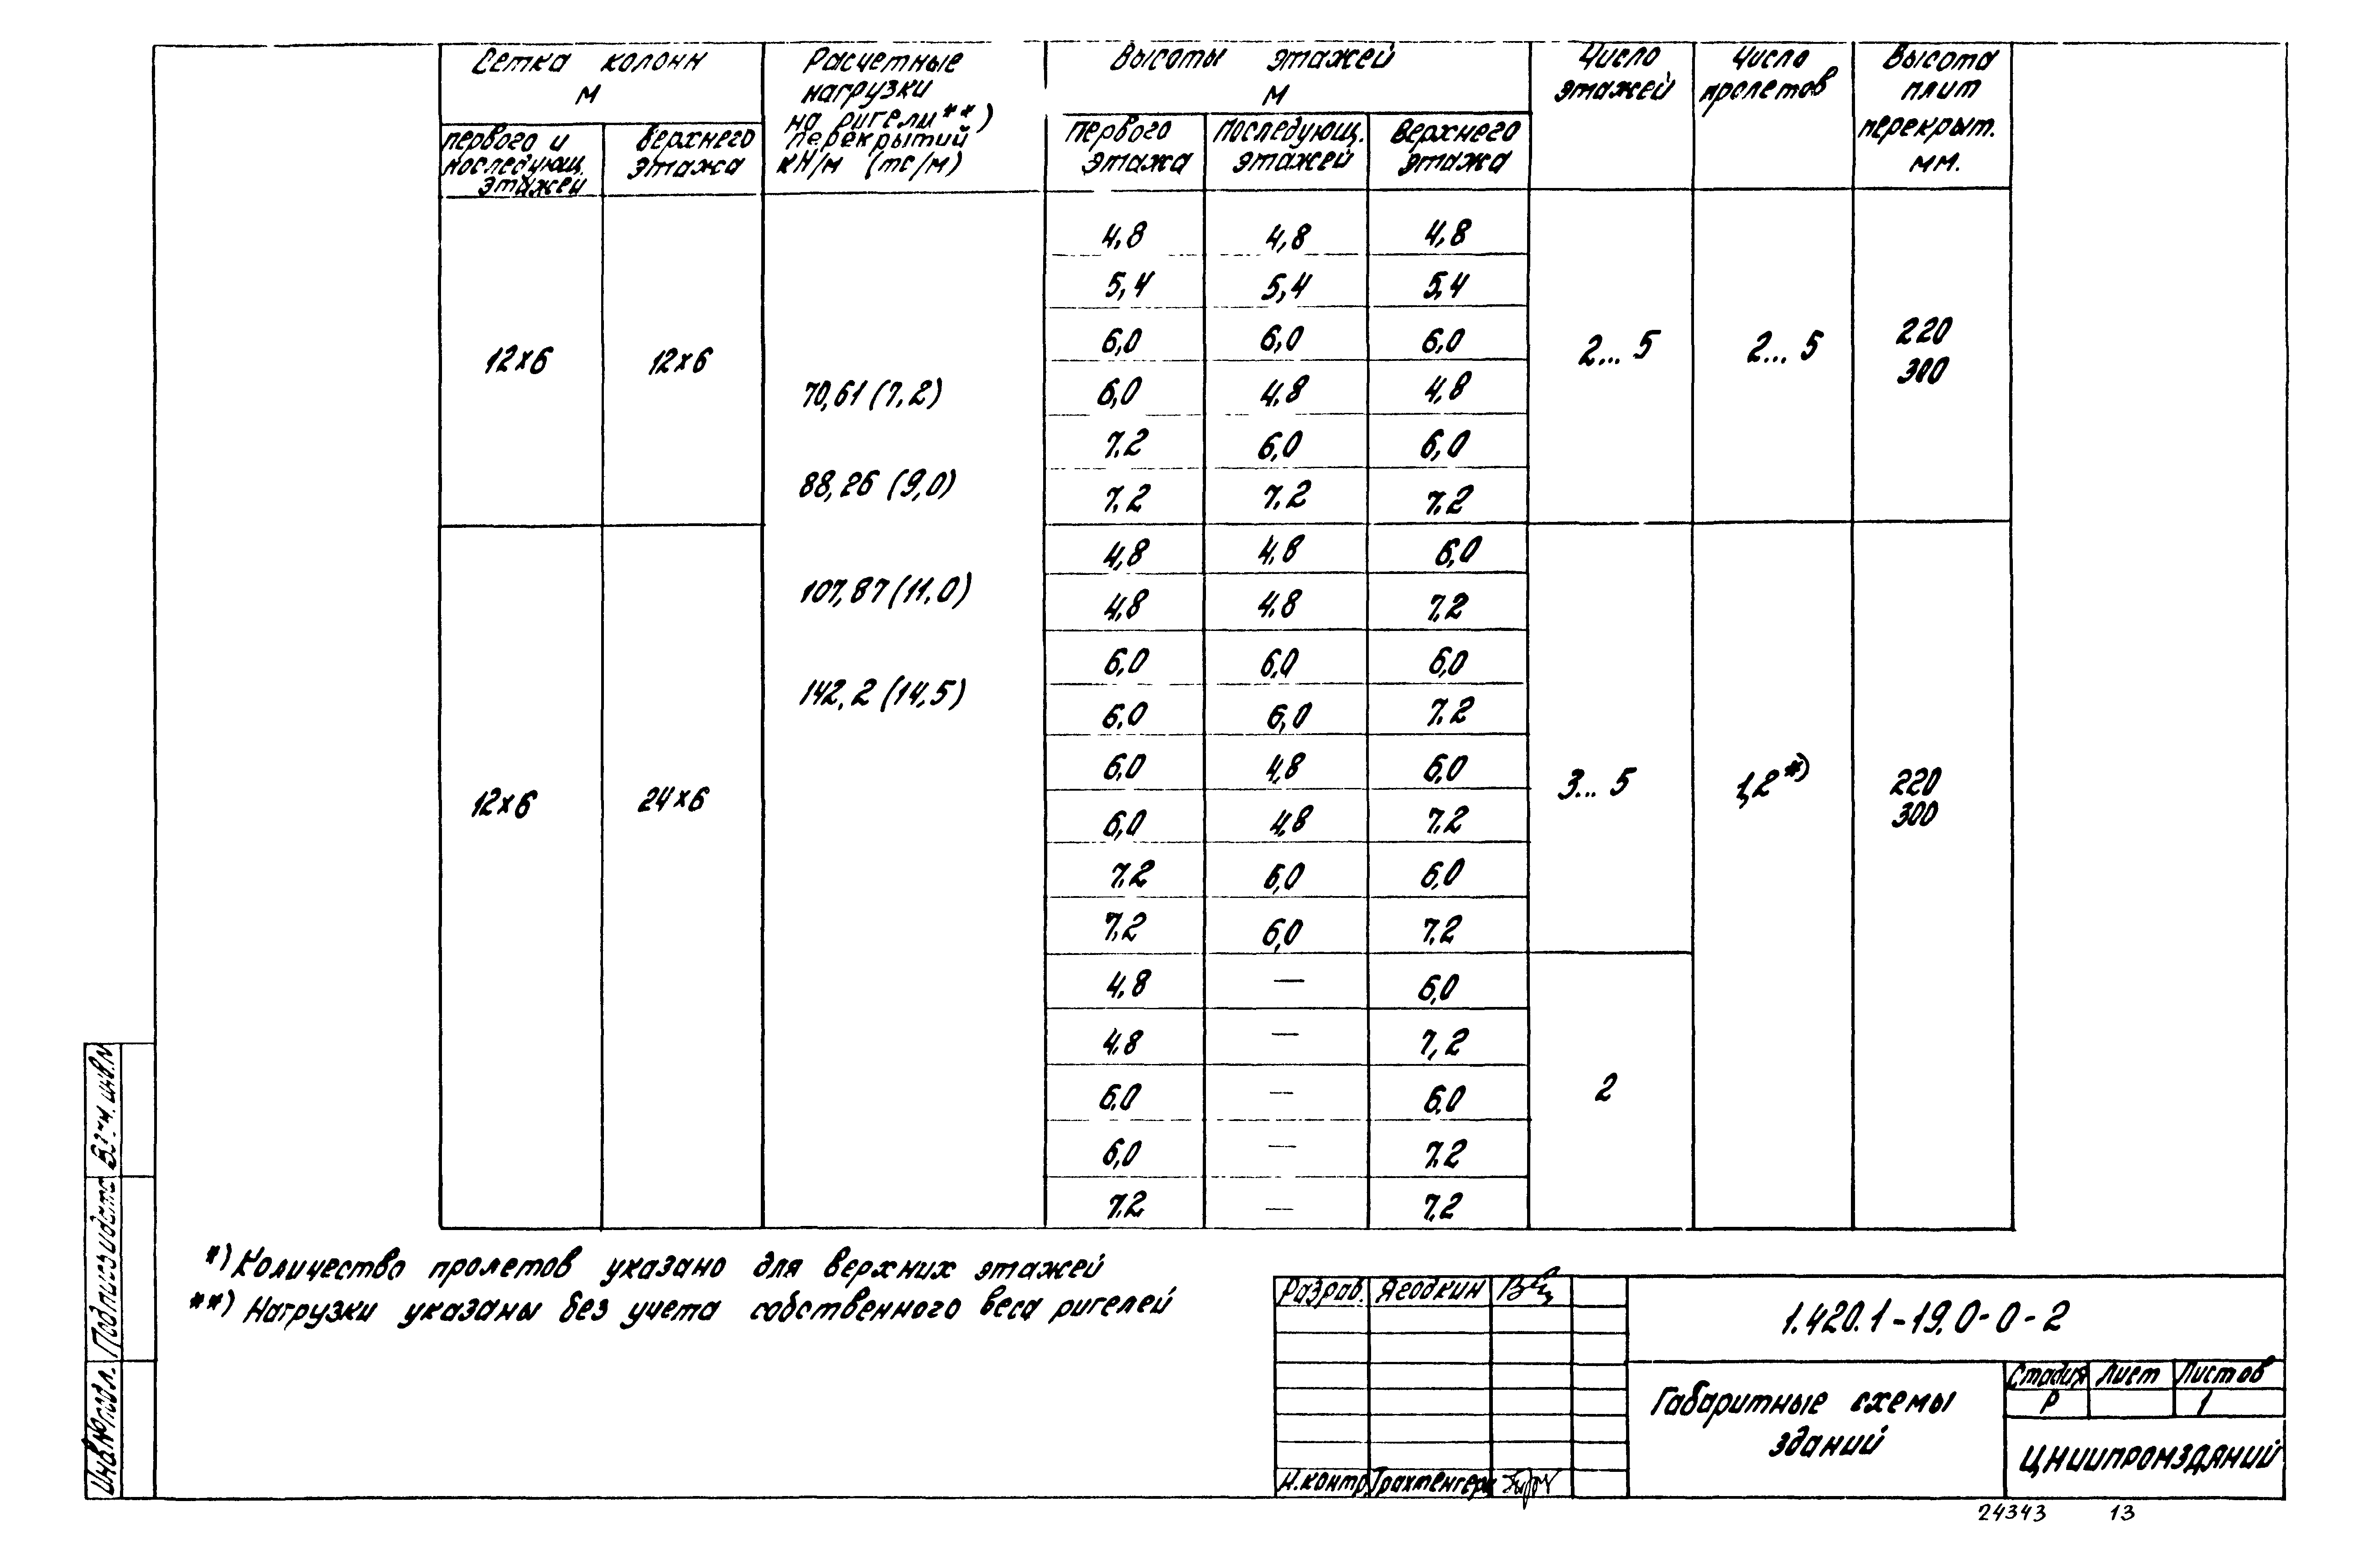 Сетка колонн
м
Расчетные
нагрузки
на ригели**)
перекрытий
кН/м (тс/м)
Высоты этажей
м
Число
этажей
Число
пролетов
Высота
плит
перекрыт.
мм.
первого и
последующ.
этажей
верхнего
этажа
первого
этажа
последующ.
этажей
верхнего
этажа
4,8 4,8 4,8
5,4 5,4 5,4
6,0 6,0 6,0
12х6 12х6
2... 5 2... 5
220
300
6,0 4,8 4,8
70,61 (7,2)
7.2 6,0 6,0
88,26 (9,0)
7.2 7.2 7.2
4,8 4,8 6,0
107,87 (11,0)
4,8 4,8 7.2
6,0 6,0 6,0
142,2 (14,5)
6,0 6,0 7.2
6,0 4,8 6,0
12х6 24х6
3... 5 1,2*)
220
300
6,0 4,8 7.2
7.2 6,0 6,0
7.2 6,0 7.2
4,8 — 6,0
4,8 — 7,2
6,0 — 6,0
2
6,0 — 7.2
7.2 — 7.2
*) Количество пролетов указано для верхних этажей
**) Нагрузки указаны без учета собственного веса ригелей
Разраб. Ягодкин
1.420.1-19.0-0-2
Габаритные схемы
зданий
Стадия Лист Листов
Р 1
ЦНИИПРОМЗДАНИЙ
Н.контр. Трахтенгерц
24343 13
Инв.№ подл. Подпись и дата Взам. инв.№